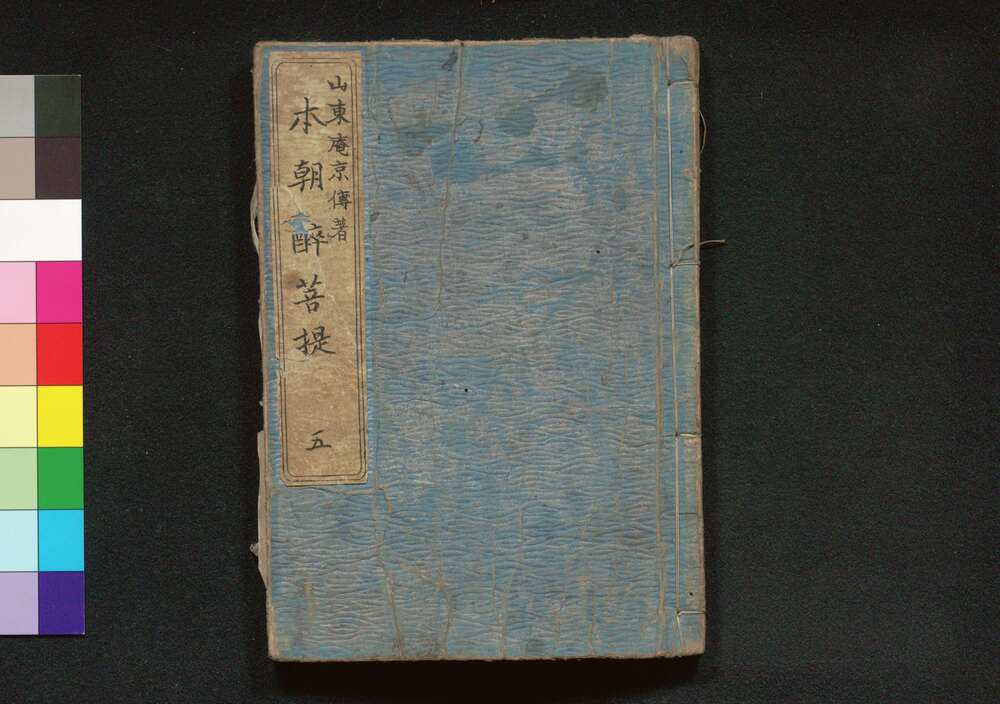 山東庵京傳著
本朝醉菩提
五